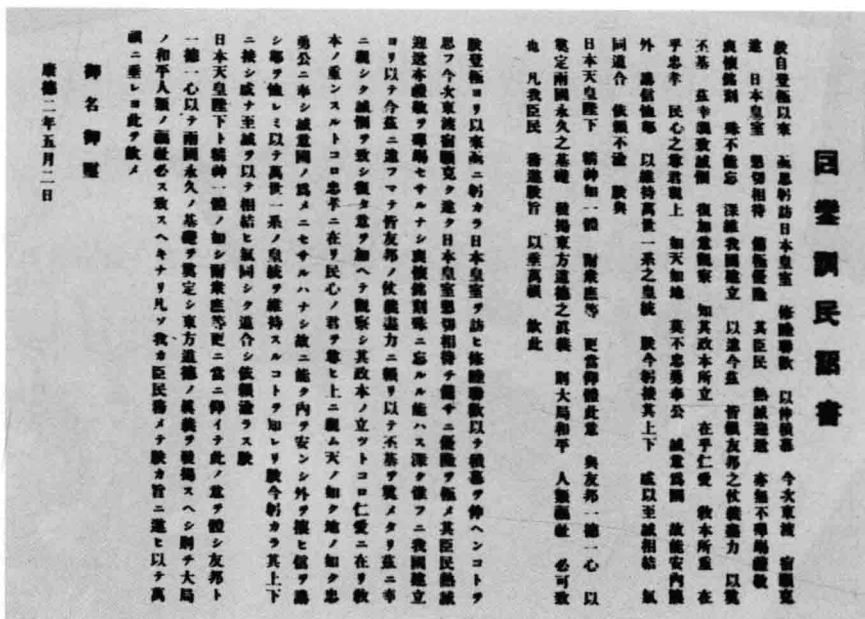 回鑾訓民詔書
朕自登極以來 亟思躬訪日本皇室 修睦聯歡 以伸積慕 今次東渡 宿願克
遂 日本皇室 懇切相待 備極優隆 其臣民 熱誠迎送 亦無不殫竭禮敬
衷懷銘刻 殊不能忘 深維我國建立 以達今茲 皆賴友邦之仗義盡力 以奠
丕基 茲幸親致誠悃 復加意觀察 知其政本所立 在乎仁愛 敎本所重 在
乎忠孝 民心之尊君親上 如天如地 莫不忠勇奉公 誠意爲國 故能安內攘
外 講信恤鄰 以維持萬世一系之皇統 朕今躬接其上下 咸以至誠相結 氣
同道合 依賴不渝 朕與
日本天皇陛下 精神如一體 爾衆庶等 更當仰體此意 與友邦一德一心 以
奠定兩國永久之基礎 發揚東方道德之眞義 則大局和平 人類福祉 必可致
也 凡我臣民 務遵朕旨 以垂萬禩 欽此
朕登極ヨリ以來亟ニ躬カラ日本皇室ヲ訪ヒ修睦聯歡以テ積慕ヲ伸ヘンコトヲ
思フ今次東渡宿願克ク遂ク日本皇室懇切相待チ備サニ優隆ヲ極メ其臣民熱誠
迎送亦禮敬ヲ殫竭セサルナシ衷懷銘刻殊ニ忘ルル能ハス深ク維フニ我國建立
ヨリ以テ今茲ニ達フマテ皆友邦ノ仗義盡力ニ賴リ以テ丕基ヲ奠メタリ茲ニ幸
ニ親シク誠悃ヲ致シ復タ意ヲ加ヘテ觀察シ其政本ノ立ツトコロ仁愛ニ在リ敎
本ノ重ンスルトコロ忠孝ニ在リ民心ノ君ヲ尊ヒ上ニ親ム天ノ如ク地ノ如ク忠
勇公ニ奉シ誠意國ノ爲メニセサルハナシ故ニ能ク內ヲ安ンシ外ヲ攘ヒ信ヲ講
シ鄰ヲ恤レミ以テ萬世一系ノ皇統ヲ維持スルコトヲ知レリ朕今躬カラ其上下
ニ接シ咸ナ至誠ヲ以テ相結ヒ氣同シク道合シ依賴渝ラス朕
日本天皇陛下ト精神一體ノ如シ爾衆庶等更ニ當ニ仰イテ此ノ意ヲ體シ友邦ト
一德一心以テ兩國永久ノ基礎ヲ奠定シ東方道德ノ眞義ヲ發揚スヘシ則チ大局
ノ和平人類ノ福祉必ス致スヘキナリ凡ソ我カ臣民務メテ朕カ旨ニ遵ヒ以テ萬
禩ニ垂レヨ此ヲ欽メ
御名御璽
康德二年五月二日